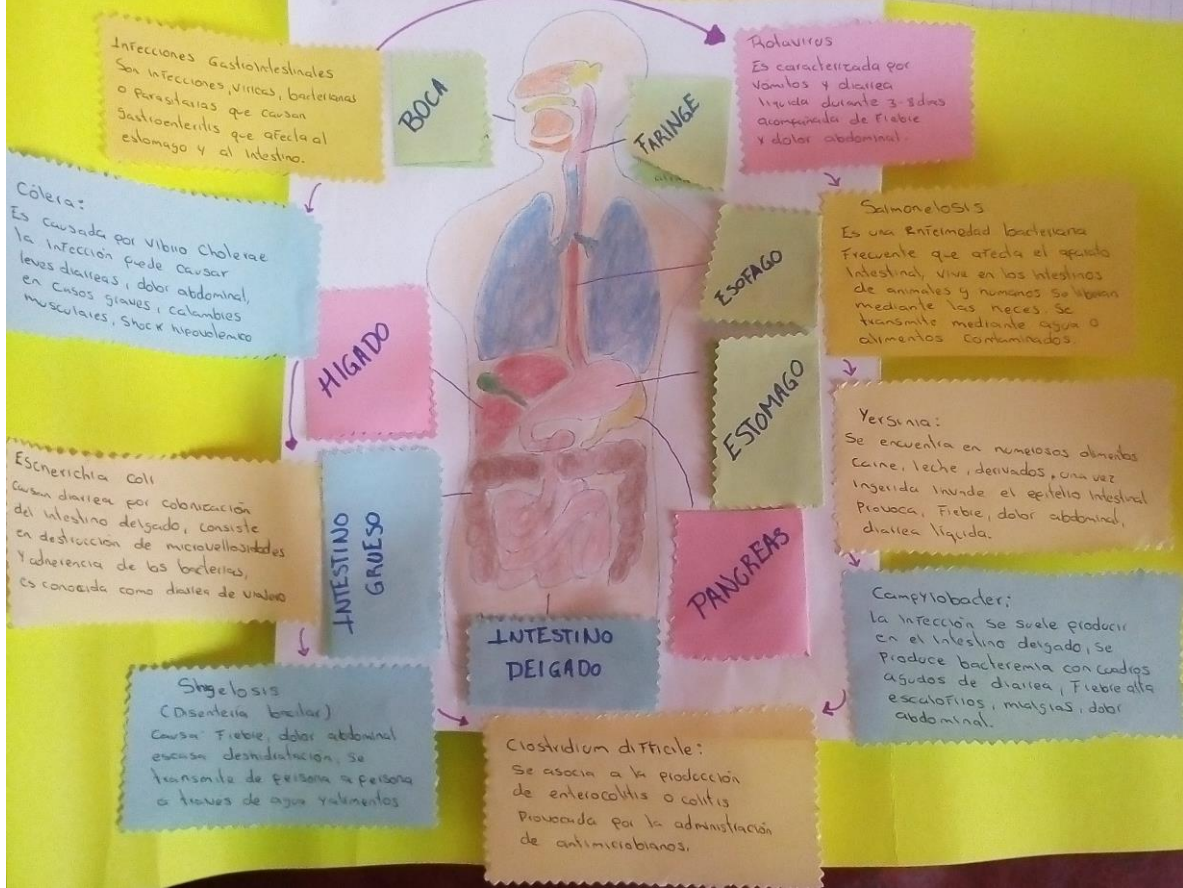 Infecciones Gastrointestinales
Son infecciones, viricas, bacterianas
o parasitarias que causan
gastroenteritis que afecta al
estomago y al intestino.
BOCA
FARINGE
Rotavirus
Es caracterizada por
vomitos y diarrea
liquida durante 3-8 dias
acompañada de Fiebre
y dolor abdominal.
Cólera:
Es causada por Vibrio Cholerae
la infección puede causar
leves diarreas, dolor abdominal,
en casos graves, calambres
musculares, shock hipovolemico
ESOFAGO
Salmonelosis
Es una Enfermedad bacteriana
Frecuente que afecta el aparato
Intestinal, vive en los intestinos
de animales y humanos se liberan
mediante las heces. Se
transmite mediante agua o
alimentos contaminados.
HIGADO
ESTOMAGO
Yersinia:
Se encuentra en numerosos alimentos
carne, leche, derivados, una vez
ingerida invade el epitelio intestinal
Provoca, Fiebre, dolor abdominal,
diarrea líquida.
Escherichia Coli
causan diarrea por colonización
del intestino delgado, consiste
en destrucción de microvellosidades
y adherencia de las bacterias,
es conocida como diarrea de viajero
INTESTINO
GRUESO
PANGREAS
Campylobacter:
la infección se suele producir
en el intestino delgado, se
Produce bacteremia con cuadros
agudos de diarrea, Fiebre alta
escalofrios, mialgias, dolor
abdominal.
INTESTINO
DELGADO
Shgelosis
(Disentería bacilar)
Causa Fiebre, dolor abdominal
escasa deshidratación, se
transmite de persona a persona
a traves de agua y alimentos
Clostridium difficile:
Se asocia a la producción
de enterocolitis o colitis
Provocada por la administración
de antimicrobianos.